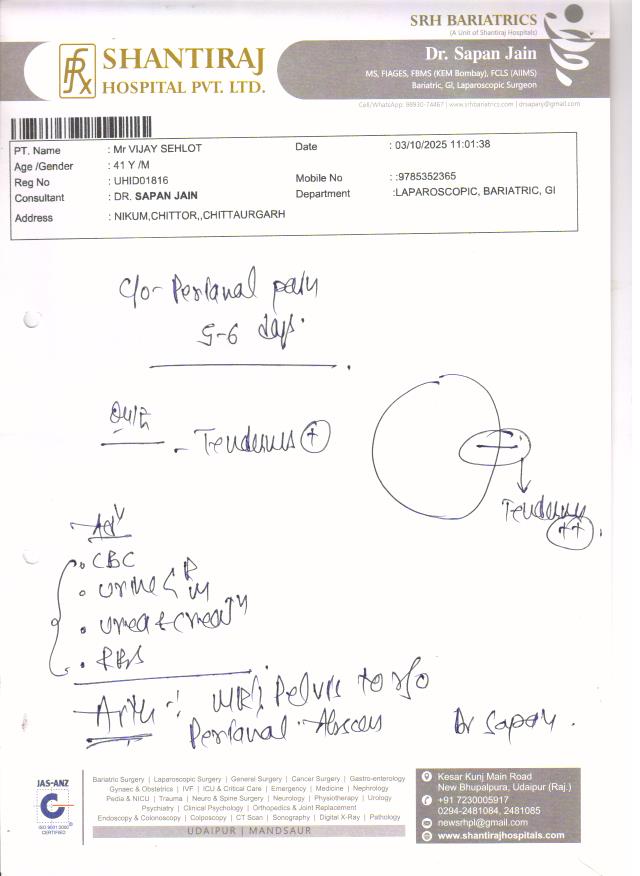 SRH BARIATRICS
(A Unit of Shantiraj Hospitals)
SHANTIRAJ
HOSPITAL PVT. LTD.
Dr. Sapan Jain
MS, FIAGES, FBMS (KEM Bombay), FCLS (AIIMS)
Bariatric, GI, Laparoscopic Surgeon
Cell/WhatsApp: 99930-74467 | www.srhbariatrics.com | drsapanj@gmail.com
PT. Name : Mr VIJAY SEHLOT Date : 03/10/2025 11:01:38
Age /Gender : 41 Y /M
Reg No : UHID01816 Mobile No : :9785352365
Consultant : DR. SAPAN JAIN Department :LAPAROSCOPIC, BARIATRIC, GI
Address : NIKUM,CHITTOR,,CHITTAURGARH
c/o- Perianal pain
5-6 days.
- Tenderness +
Tenderness
++
Adv
CBC
Urine R/M
Urea & Creat
RBS
MRI Pelvis to r/o
Perianal Abscess
Dr Sapan.
JAS-ANZ
ISO 9001 2000
CERTIFIED
Bariatric Surgery | Laparoscopic Surgery | General Surgery | Cancer Surgery | Gastro-enterology
Gynaec & Obstetrics | IVF | ICU & Critical Care | Emergency | Medicine | Nephrology
Pedia & NICU | Trauma | Neuro & Spine Surgery | Neurology | Physiotherapy | Urology
Psychiatry | Clinical Psychology | Orthopedics & Joint Replacement
Endoscopy & Colonoscopy | Colposcopy | CT Scan | Sonography | Digital X-Ray | Pathology
UDAIPUR | MANDSAUR
Kesar Kunj Main Road
New Bhupalpura, Udaipur (Raj.)
+91 7230005917
0294-2481084, 2481085
newsrhpl@gmail.com
www.shantirajhospitals.com